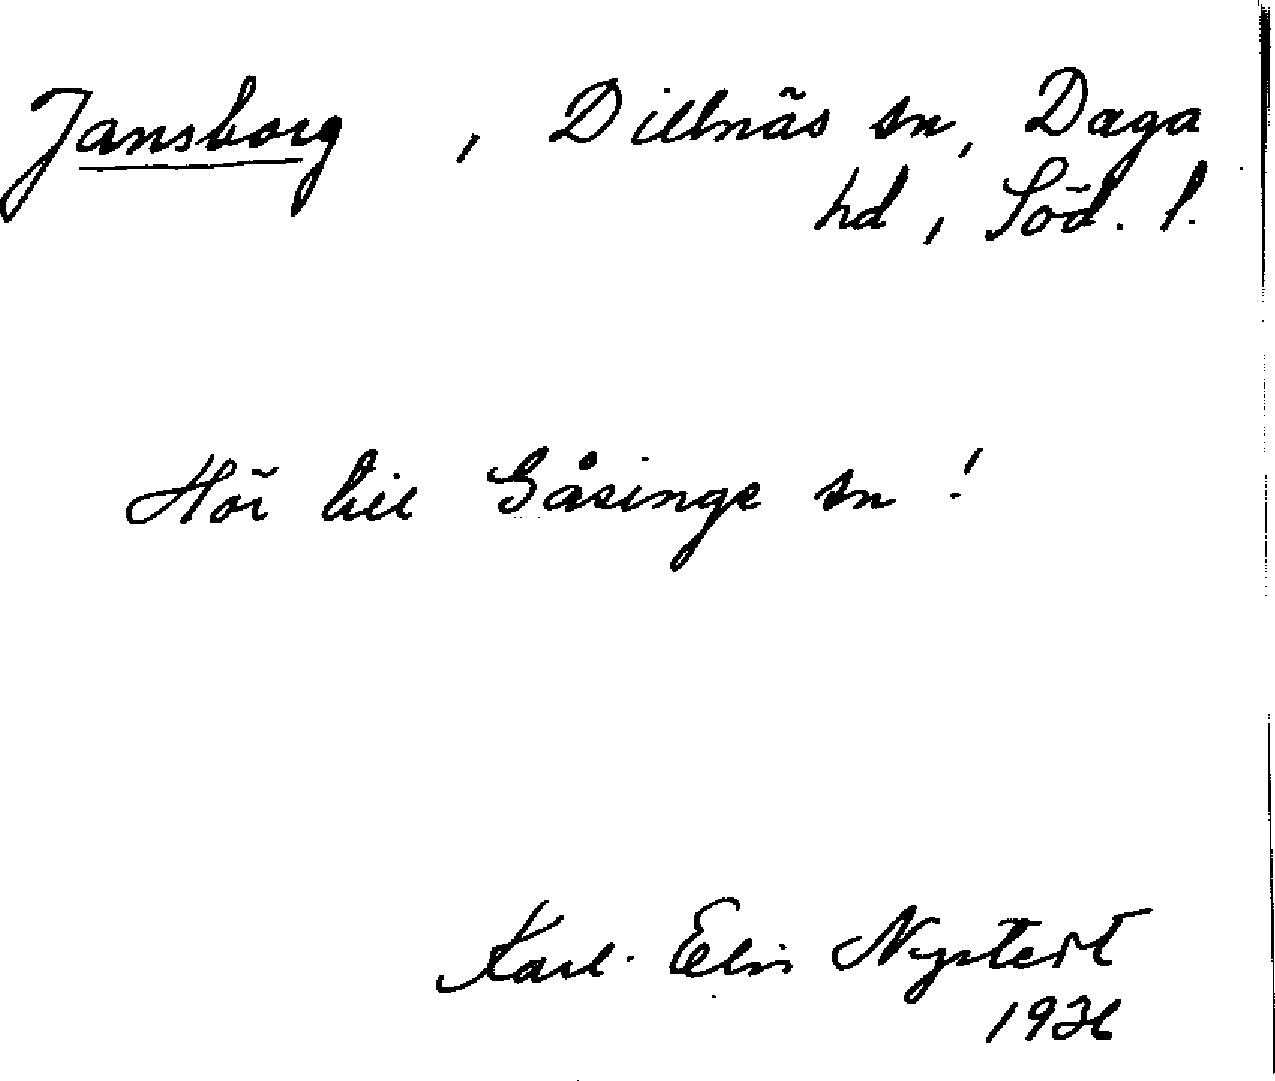 Jansborg, Dillnäs sn, Daga
hd, Söd. l.
Hör till Gåsinge sn!
Karl-Elin Nystedt
1936